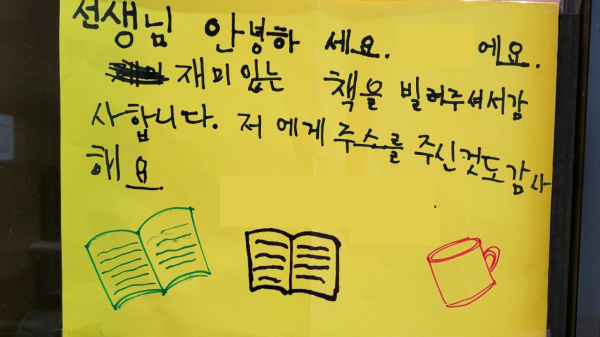 선생님 안녕하 세요. 에요.
재미있는 책을 빌려주셔서감
사합니다. 저 에게 주소를 주신것도감사
해요